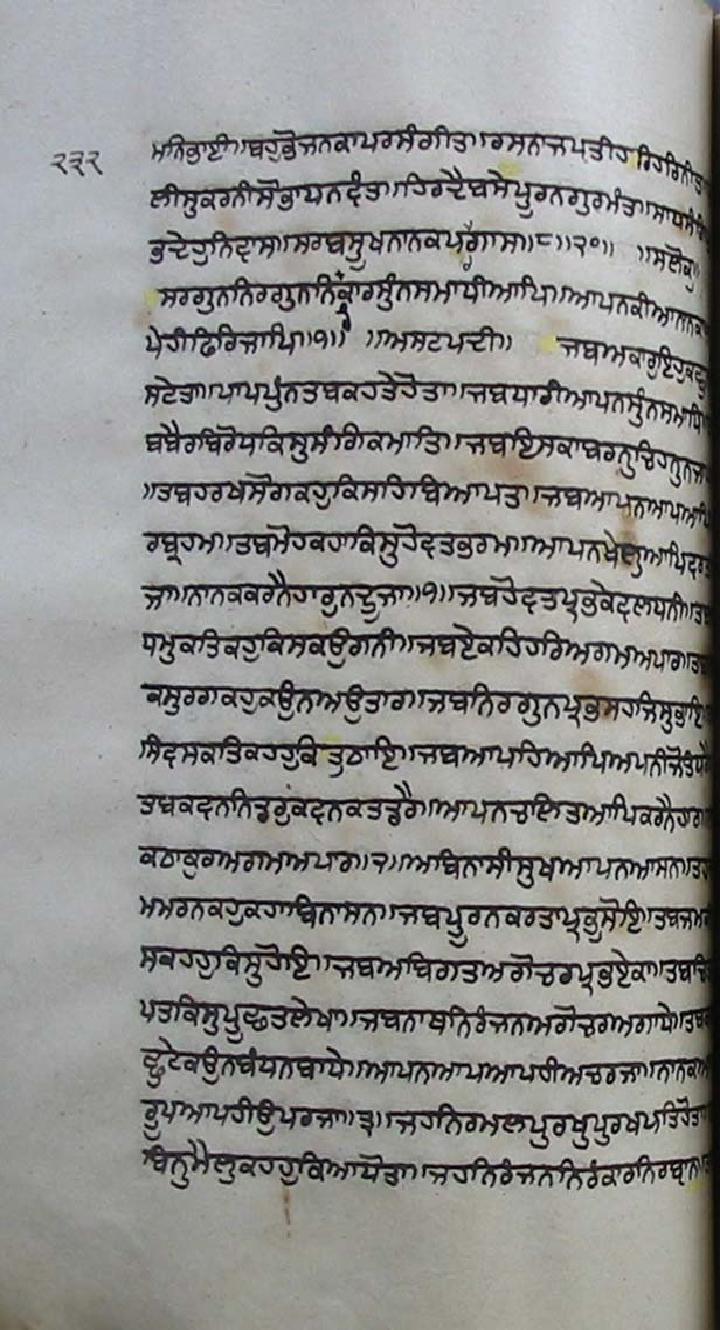 ੨੩੨
ਮਨਿਭਾਈ॥ਬਹੁਭੋਜਨਕਾਪਰਸੰਗੀਤਾ॥ਰਸਨਾਜਪਤੀਹਰਿਹਰਿਨੀਤਾ
ਲੀਸੁਕਰਨੀਸੋਭਾਧਨਵੰਤ॥ਹਿਰਦੈਬਸੇਪੂਰਨਗੁਰਮੰਤ॥ਸਾਧਸੰਗਿ
ਭਦੇਹੁਨਿਵਾਸ॥ਸਰਬਸੂਖਨਾਨਕਪਰਗਾਸ॥੮॥੨੦॥ ॥ਸਲੋਕੁ॥
ਸਰਗੁਨਨਿਰਗੁਨਨਿਰੰਕਾਰਸੁੰਨਸਮਾਧੀਆਪਿ॥ਆਪਨਕੀਆਨਾਨਕਾ
ਪੇਹੀਫਿਰਿਜਾਪਿ॥੧॥ ॥ਅਸਟਪਦੀ॥ ਜਬਅਕਾਰੁਇਹੁਕਛੁ
ਸਟੇਤਾ॥ਪਾਪਪੁੰਨਤਬਕਹਤੇਹੋਤਾ॥ਜਬਧਾਰੀਆਪਨਸੁੰਨਸਮਾਧਿ
ਬਬੈਰਬਿਰੋਧਕਿਸੁਸੰਗਿਕਮਾਤਿ॥ਜਬਇਸਕਾਬਰਨੁਚਿਹਨੁਨਜਾ
॥ਤਬਹਰਖਸੋਗਕਹੁਕਿਸਹਿਬਿਆਪਤ॥ਜਬਆਪਨਆਪਆਪਿ
ਰਬ੍ਰਹਮ॥ਤਬਮੋਹਕਹਾਕਿਸੁਹੋਵਤਭਰਮ॥ਆਪਨਖੇਲੁਆਪਿਵਰਤੀ
ਜਾ॥ਨਾਨਕਕਰਨੈਹਾਰੁਨਦੂਜਾ॥੧॥ਜਬਹੋਵਤਪ੍ਰਭਕੇਵਲਧਨੀ॥ਤਬ
ਧਮੁਕਤਿਕਹੁਕਿਸਕਉਗਨੀ॥ਜਬਏਕਹਿਹਰਿਅਗਮਅਪਾਰ॥ਤਬ
ਕਸੁਰਗਕਹੁਕਉਨਅਉਤਾਰ॥ਜਬਨਿਰਗੁਨਪ੍ਰਭਸਹਜਿਸੁਭਾਇ
ਸਿਵਸਕਤਿਕਹਹੁਕਿਤੁਠਾਇ॥ਜਬਆਪਹਿਆਪਿਅਪਨੀਜੋਤਿਧਰੈ
ਤਬਕਵਨਨਿਡਰੁਕਵਨਕਤਡਰੈ॥ਆਪਨਚਲਿਤਆਪਿਕਰਨੈਹਾਰ
ਕਠਾਕੁਰਅਗਮਅਪਾਰ॥੨॥ਅਬਿਨਾਸੀਸੁਖਆਪਨਆਸਨ॥ਤਹ
ਮਮਰਨਕਹੁਕਹਾਬਿਨਾਸਨ॥ਜਬਪੂਰਨਕਰਤਾਪ੍ਰਭੁਸੋਇ॥ਤਬਜਮਕੀ
ਸਕਹਹੁਕਿਸੁਹੋਇ॥ਜਬਅਬਿਗਤਅਗੋਚਰਪ੍ਰਭਏਕਾ॥ਤਬਚਿ
ਪਤਕਿਸੁਪੂਛਤਲੇਖਾ॥ਜਬਨਾਥਨਿਰੰਜਨਅਗੋਚਰਅਗਾਧੇ॥ਤਬਕ
ਛੁਟੇਕਉਨਬੰਧਨਬਾਧੇ॥ਆਪਨਆਪਆਪਹੀਅਚਰਜਾ॥ਨਾਨਕਆ
ਰੂਪਆਪਹੀਉਪਰਜਾ॥੩॥ਜਹਨਿਰਮਲਪੁਰਖੁਪੁਰਖਪਤਿਹੋਤਾ
ਬਿਨੁਮੈਲੁਕਹਹੁਕਿਆਧੋਤਾ॥ਜਹਨਿਰੰਜਨਨਿਰੰਕਾਰਨਿਰਬਾਨ॥ਤ